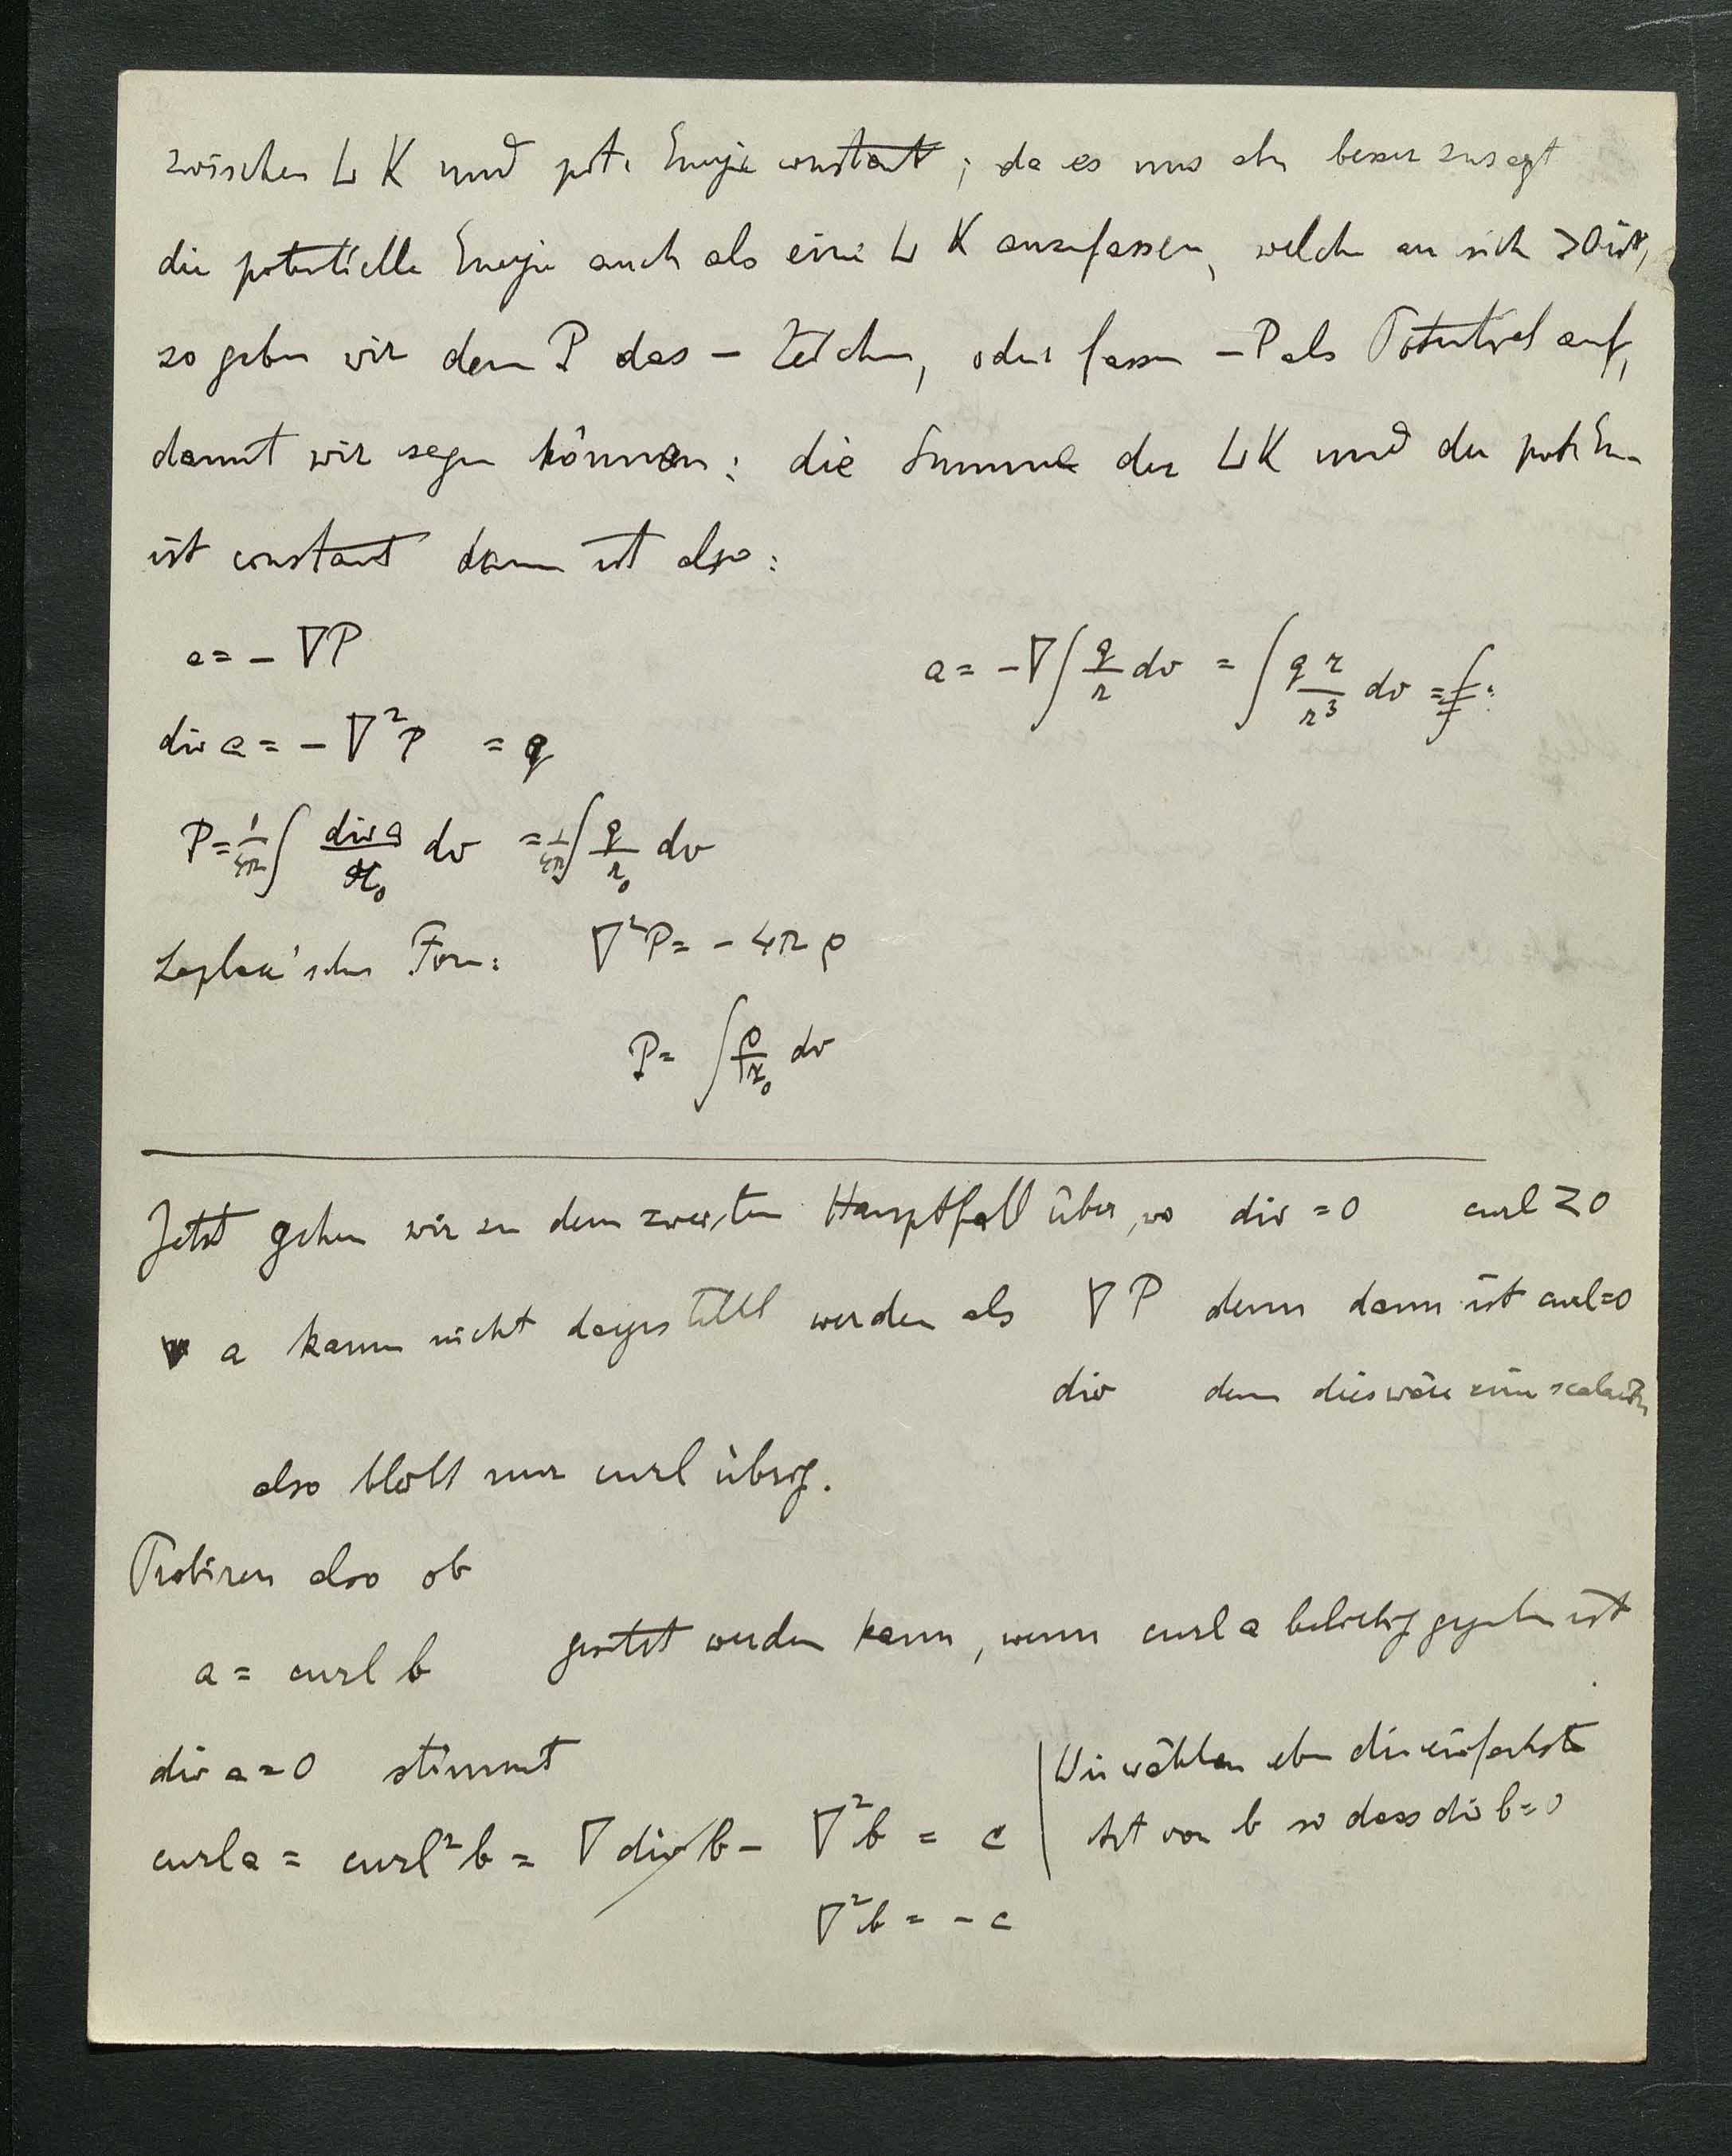 zwischen L K und pot. Energie constant; da es uns aber besser zusagt
die potentielle Energie auch als eine L K anzufassen, welche an sich >0 ist,
so geben wir dem P das − Zeichen, oder fassen −P als Potential auf,
damit wir sagen können: die Summe der LK und der pot. En.
ist constant dann ist also:
a = − ∇P
a = −∇∫ q/r dv = ∫ q r/r³ dv =
div a = − ∇²P = q
P = 1/4π ∫ div a/r₀ dv = 1/4π ∫ q/r₀ dv
Laplace'sche Form: ∇²P = − 4π ρ
P = ∫ ρ/r₀ dv
Jetzt gehen wir zu dem zweiten Hauptfall über, wo div = 0 curl ≷ 0
a kann nicht dargestellt werden als ∇ P denn dann ist curl=0
div denn dies wäre ein
also bleibt nur curl übrig.
Probiren also ob
a = curl b gesetzt werden kann, wenn curl a beliebig gegeben ist
div a = 0 stimmt
curl a = curl² b = ∇ div b − ∇² b = c
Wir wählen eben die einfachste
Art von b so dass div b = 0
∇² b = − c